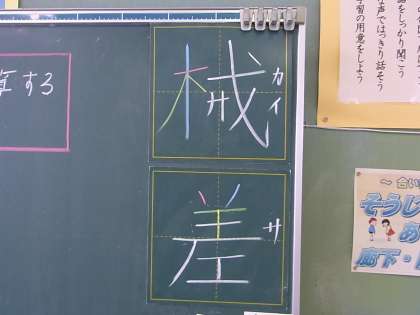 械
カイ
差
サ
算する
声ではっきり話そう
学習の用意をしよう
をしっかり聞こう
～合い
そうじ
あ
廊下・